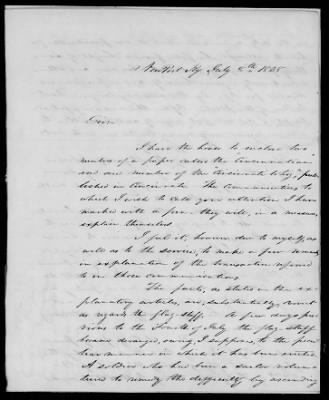 NewPort Ky July 8th 1835
Sir,
I have the honor to enclose two
numbers of a paper called the Cincinnatian
and one number of the "Cincinnati Whig", pub
lished in Cincinnati. The communications to
which I wish to call your attention I have
marked with a pen - they will, in a measure,
explain themselves.
I feel it, however due to myself, as
well as to the service, to make a few remarks
in explanation of the transaction referred
to in those communications.
The facts, as stated in the ex-
planatory articles, are, substantially, correct
as regards the flag-staff. A few days pre-
vious to the Fourth of July the flag-staff
became deranged, owing, I suppose, to the
manner in which it has been
A soldier who had been a sailor volun-
teered to remedy the difficulty by ascending